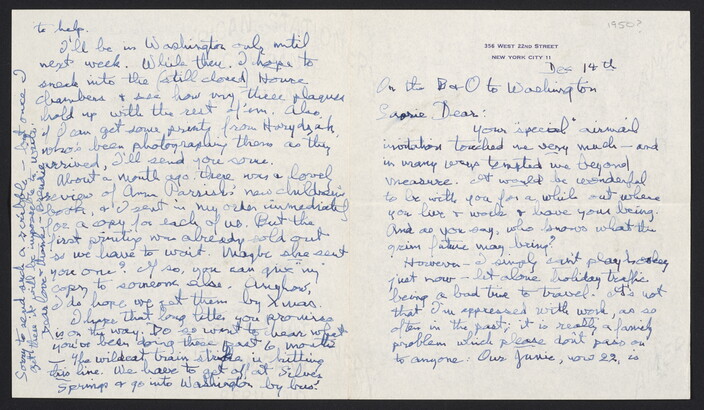 1950?
356 WEST 22ND STREET
NEW YORK CITY 11
Dec 14th
On the B&O to Washington
Dear:
Your "special" airmail
invitation touched me very much – and
in many ways tempted me beyond
measure. It would be wonderful
to be with you for a while out where
you live & work & have your being.
And as you say, who knows what the
grim future may bring?
However – I simply can't play hookey
just now – let alone holiday traffic
being a bad time to travel. It's not
that I'm oppressed with work, as so
often in the past; it is really a family
problem which please don't pass on
to anyone: Our Junie, now 22, is
to help.
I'll be in Washington only until
next week. While there I hope to
sneak into the (still closed) House
chambers & see how my three plaques
hold up with the rest of 'em. Also,
if I can get some prints from
who's been photographing them as they
arrived, I'll send you some.
About a month ago there was a lovely
review of Ann Parrish's new children's
book, & I sent in my order immediately
for a copy for each of us. But the
first printing was already sold out
so we have to wait. Maybe she sent
you one? If so, you can give "my"
copy to someone else. Anyhow,
I do hope we get them by Xmas.
I hope that long letter you promise
is on the way. Do so want to hear what
you've been doing these past 6 months
– The wildcat train strike is hitting
this line. We have to get off at Silver
Springs & go into Washington by bus!
Sorry to send such a scribble – but once I
get there it will be impossible to write.
Dear love